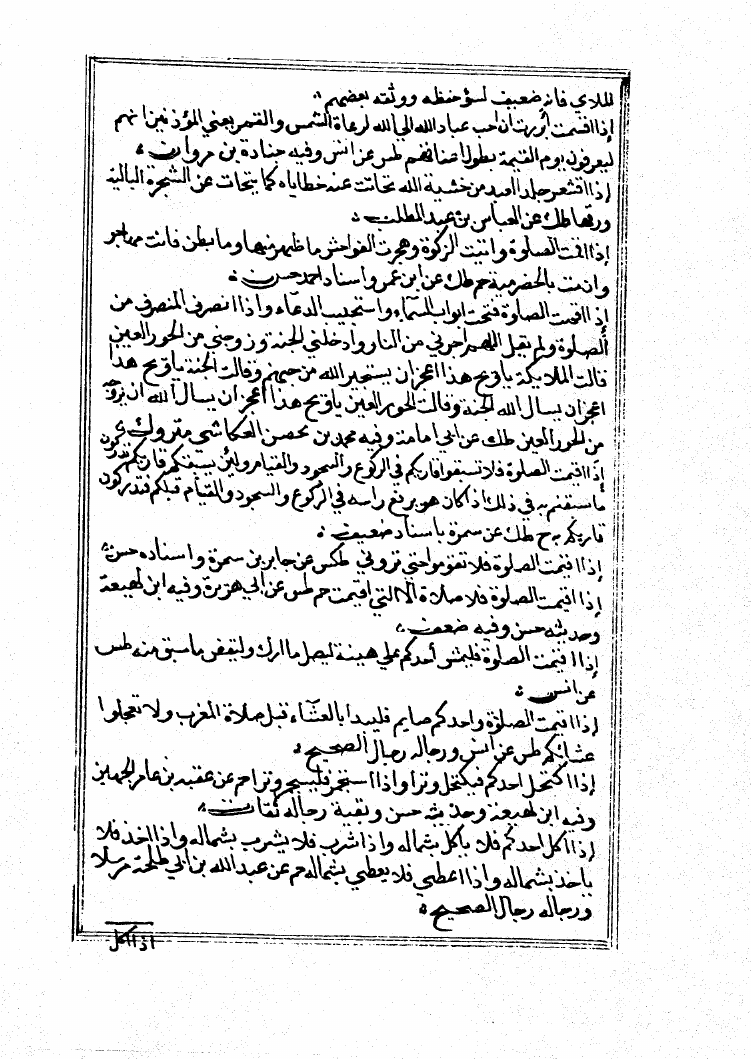 الملاي فانه ضعيف لسؤ حفظه ووثقه بعضهم
إذا اقسمت أبررت ان احب عباد الله الي الله لرعاة الشمس والقمر يعني المؤذنين انهم
ليعرفون يوم القيمة بطول اعناقهم طس عن انس وفيه جنادة بن مروان
إذا اقشعر جلد العبد من خشية الله تحاتت عنه خطاياه كما يتحات عن الشجرة البالية
ورقها طك عن العباس بن عبد المطلب
إذا اقمت الصلوة واتيت الزكوة وهجرت الفواحش ما ظهر منها وما بطن فانت مهاجر
وان مت بالحضرمية حم طك عن ابن عمر واسناد احمد حسن
إذا اقيمت الصلوة فتحت ابواب السماء واستجيب الدعاء واذا انصرف المنصرف من
الصلوة ولم يقل اللهم اجرني من النار وادخلني الجنة وزوجني من الحور العين
قالت الملايكة ياويح هذا اعجز ان يستجير الله من جهنم وقالت الجنة ياويح هذا
اعجز ان يسال الله الجنة وقالت الحور العين ياويح هذا اعجز ان يسال الله ان يزوجه
من الحور العين طك عن ابي امامة وفيه محمد بن محصن العكاشي متروك
إذا اقيمت الصلوة فلا تسبقوا قاريكم في الركوع والسجود والقيام ولئن يسبقكم قاريكم تدركون
ما سبقتم به في ذلك اذ كان هو يرفع راسه في الركوع والسجود والقيام قبلكم فتدركون
قاريكم به ح طك عن سمرة باسناد ضعيف
إذا اقيمت الصلوة فلا تقوموا حتي تروني طكس عن جابر بن سمرة واسناده حسن
إذا اقيمت الصلوة فلا صلاة الا التي اقيمت حم طس عن ابي هريرة وفيه ابن لهيعة
وحديثه حسن وفيه ضعف
إذا اقيمت الصلوة فليمش أحدكم علي هينة ليصل ما ادرك وليقض ما سبق منه طس
عن انس
إذا اقيمت الصلوة واحدكم صايم فليبدا بالعشاء قبل صلاة المغرب ولا تعجلوا
عشائكم طس عن انس ورجاله رجال الصحيح
إذا اكتحل احدكم فيكتحل وترا واذا استجمر فليستجمر وترا حم عن عقبه بن عامر الجهني
وفيه ابن لهيعة وحديثه حسن وبقية رجاله ثقات
إذا اكل احدكم فلا ياكل بشماله واذا شرب فلا يشرب بشماله واذا اخذ فلا
ياخذ بشماله واذا اعطي فلا يعطي بشماله حم عن عبد الله بن ابي طلحة مرسلا
ورجاله رجال الصحيح
اذا اكل